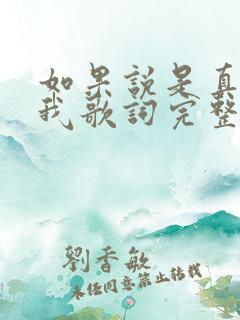 如果說是真
我歌詞完整
劉香敏
未经同意禁止转载